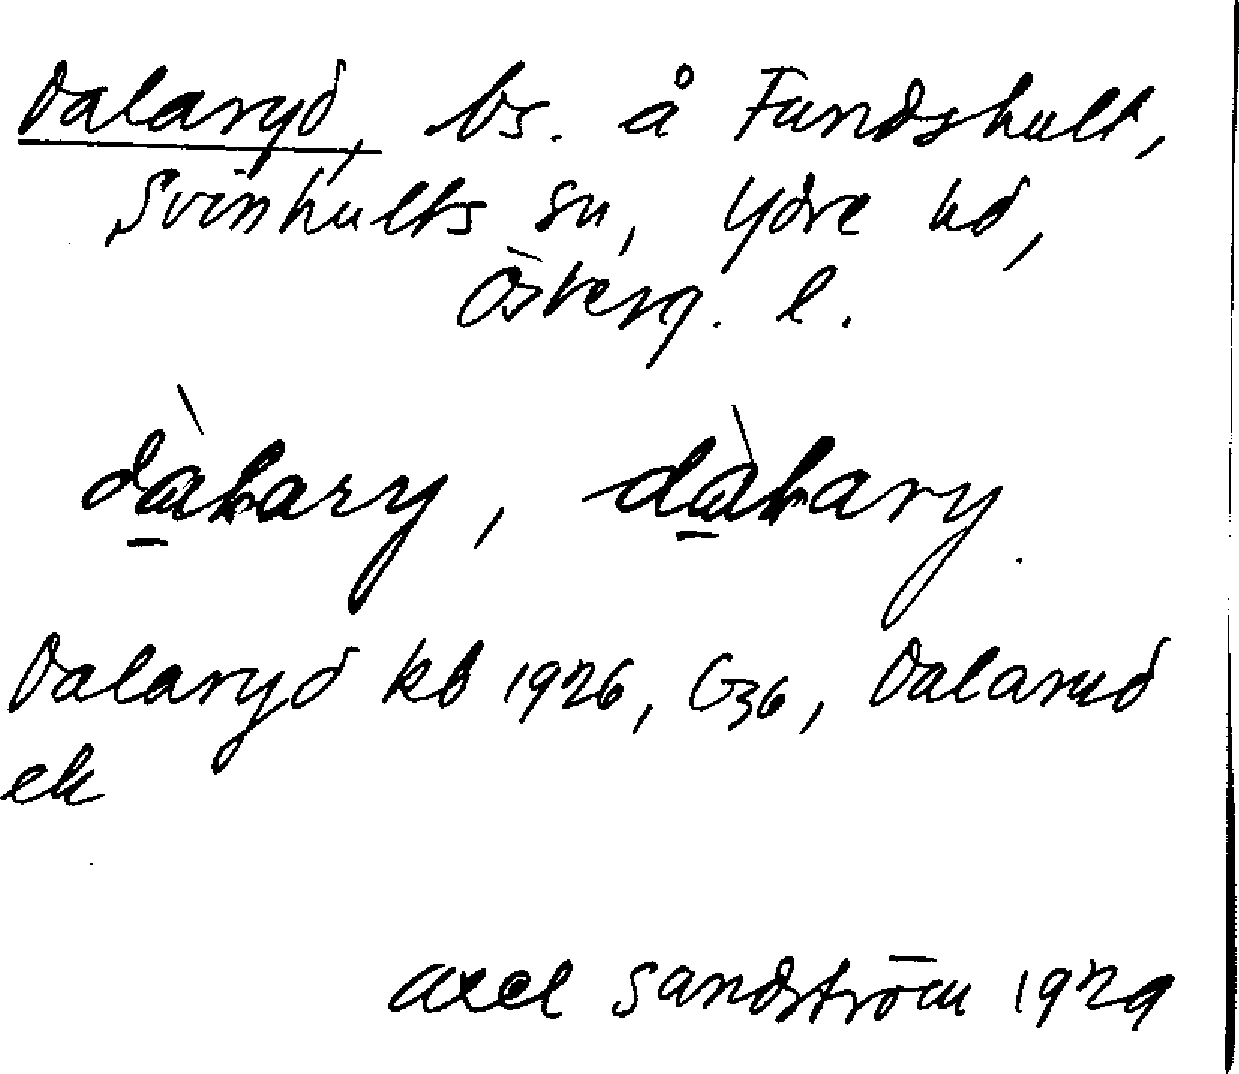 Dalaryd, bs. å Fundshult,
Svinhults sn, Ydre hd,
Österg. l.
Dalaryd kb 1926, G36, Dalarud
ek
Axel Sandström 1929